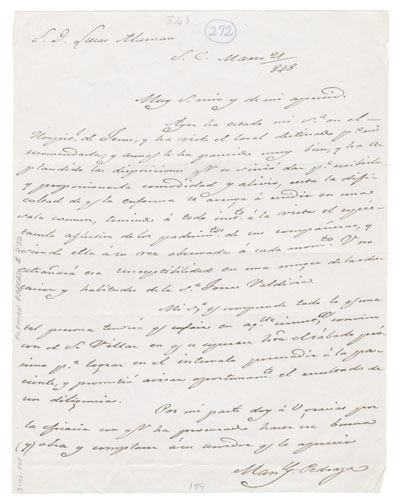 343
272
S. D. Lucas Alaman
S. C. Marzo 21
/848
Muy S. mio y de mi aprecio.
Ayer ha estado mi S.ª en el
Hospi.l de Jesus, y ha visto el local destinado p.ª mi
recomendada; y aunq.e le ha parecido muy bien, y ha a-
plaudido las disposiciones q.e V. se sirvió dar p.ª recibirla
y proporcionarle comodidad y alivio, esta la difi-
cultad de q.e la enferma se avenga á residir en una
sala comun, teniendo á todo inst.e á la vista el espec-
taculo aflictivo de los padecim.tos de sus compañeras, y
viendo ella á su vez observada á cada mom.to V. no
estrañará esa susceptibilidad en una muger de la edu-
cacion y habitudes de la S.ª Torres Valdivia.
Mi S.ª q.e comprende todo lo q.e una
tal persona tendria q.e sufrir en aq.llas circunst.s, convino
con el S. Villar en q.e se esperase hasta el sábado pró-
ximo p.ª lograr en el intervalo persuadir á la pa-
ciente, y prometió avisar oportunam.te el resultado de
sus diligencias.
Por mi parte doy á V. gracias por
la eficacia con q.e ha procurado hacer esa buena
obra y complacer á su servidor q.e lo aprecia
Man.l G. Pedraza
199